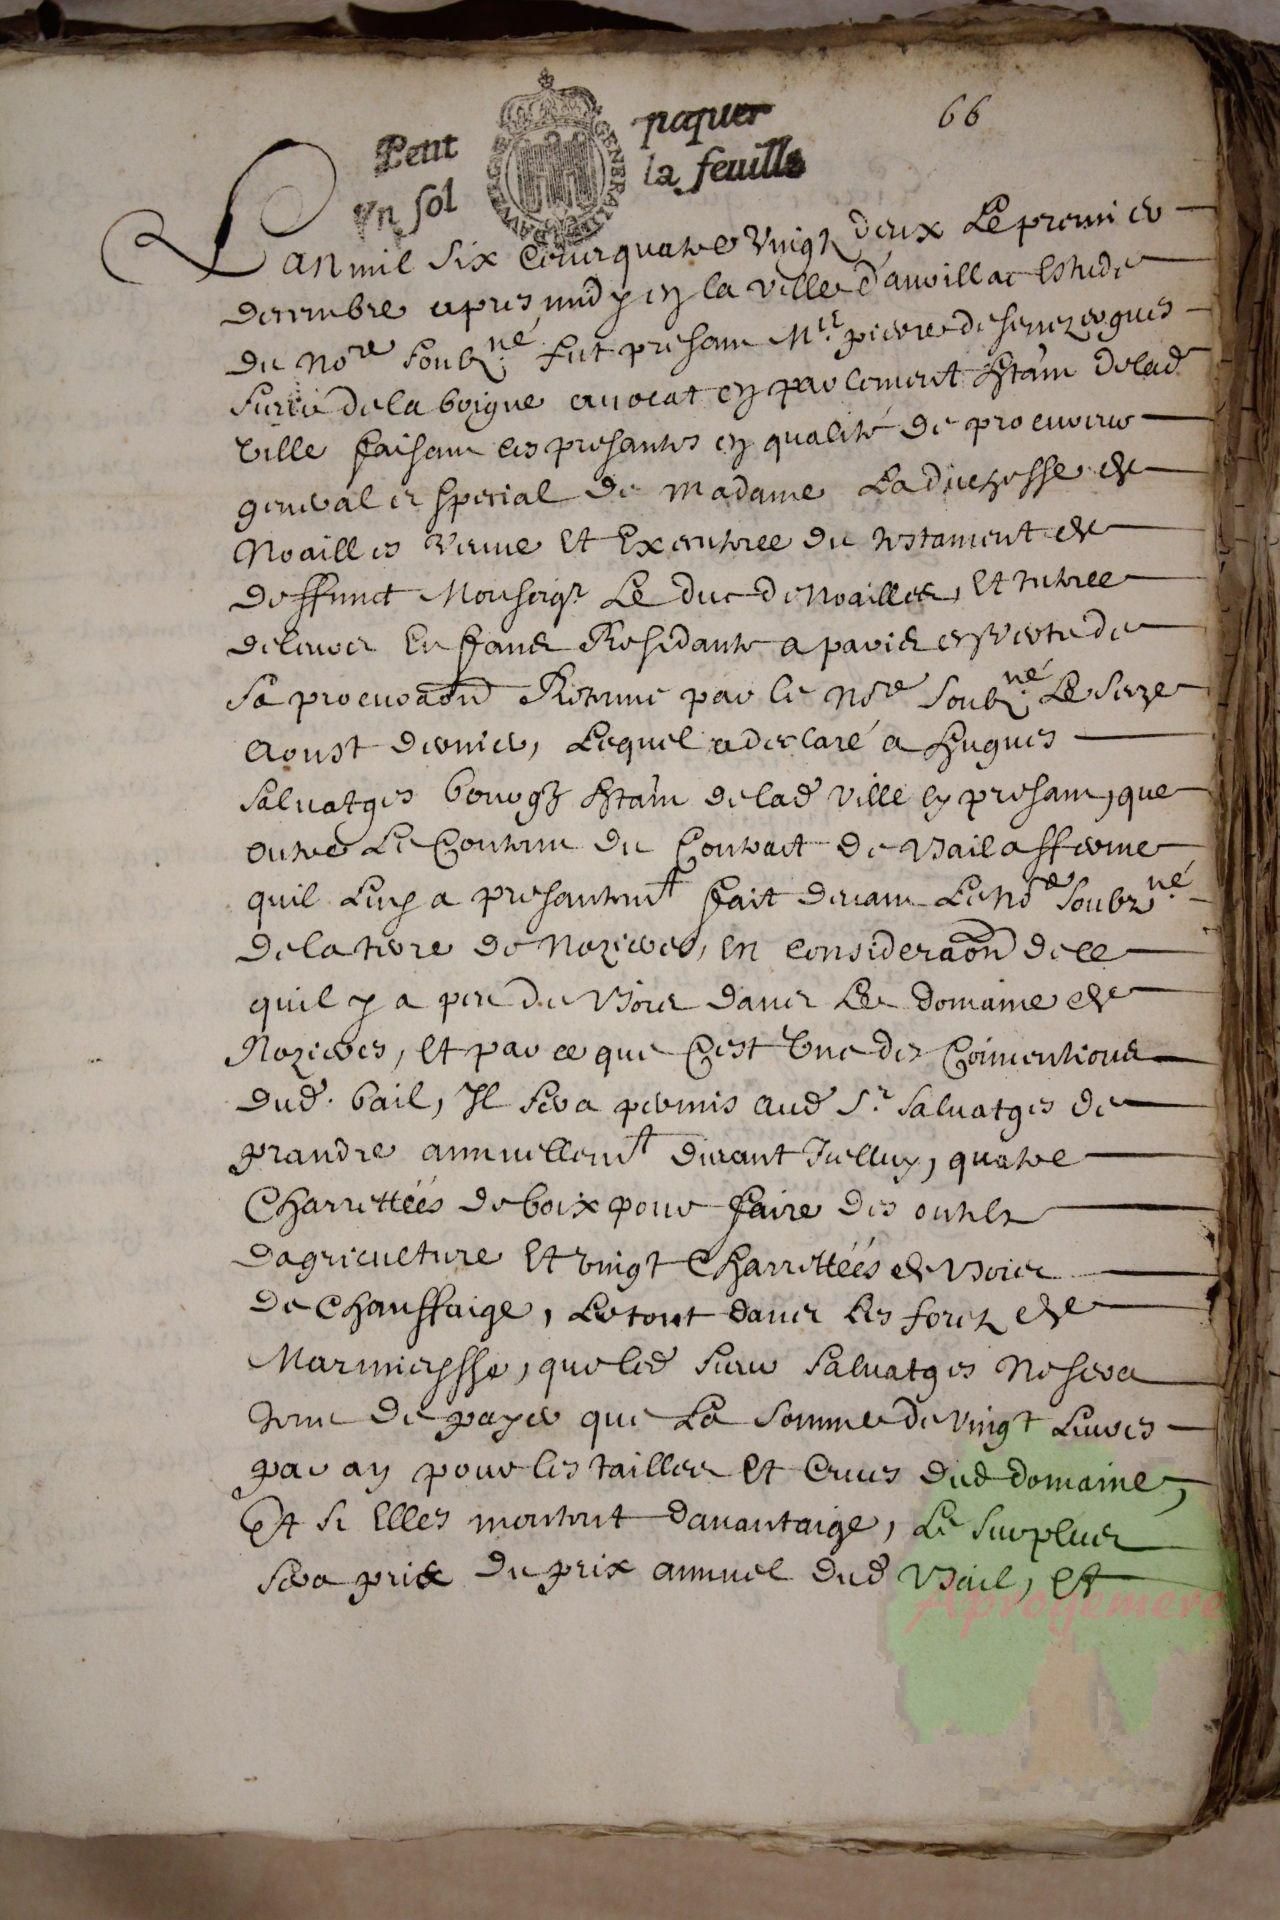 66
Petit papier
Vn sol la feuille
Lan mil Six Cens quatre Vingt deux Le premier
decembre apres midy en la Ville daurillac Estude
du nore soubzné fut presant Mre pierre de senezergues
sieur de la borgne auocat en parlement htant de lad
Ville faisant les presantes en qualité de procureur
general et special de Madame La duchesse de
Noailles Vefue Et Executrice du testament de
deffunct Monseigr Le duc de Noailles, Et tutrice
de leurs Enfans Residante a paris en Vertu de
sa procuraōn Retenue par le nore soubzné Le seize
Aoust dernier, Lequel a declaré a hugues
Saluatges bourgs htant de lad Ville Cy presant, que
outre Le Contenu du Contract de Bail afferme
quil Luy a presantemt fait deuant Le Nore soubzné
de la terre de Nozieres, En consideraōn de ce
quil y a peu de Bois dans Le domaine de
Nozieres, Et par ce que Cest Vne des Conuentions
dud. bail, Il sera permis aud Sr. Saluatges de
prandre annuellemt durant Icelluy, quatre
Charrettéés de boix pour faire des outils
dagriculture Et Vingt Charrettéés de Bois
de Chauffaige, Le tout dans Les foretz de
Marmiesse, que led sieur Saluatges Ne sera
tenu de payer que La somme de Vingt Liures
par an pour Les tailles Et Crues dud domaine,
Et si Elles montent dauantaige, Le surplus
sera pris du prix annuel dud Bail, Et
Aprogemere